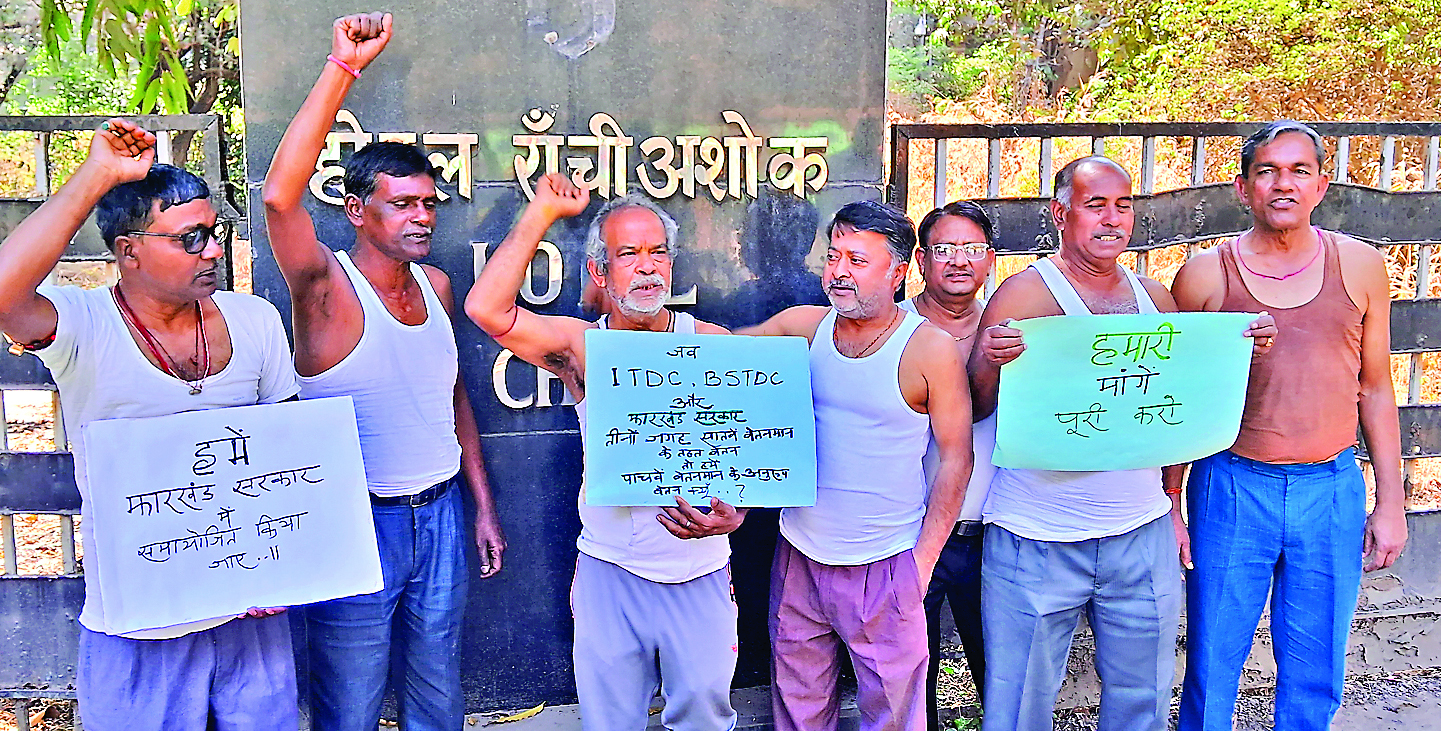 होटल राँची अशोक
हमें
झारखंड सरकार
में
समायोजित किया
जाए..!!
जब
ITDC, BSTDC
और
झारखंड सरकार
तीनों जगह सातवें वेतनमान
के तहत वेतन
तो हमें
पाचवें वेतनमान के अनुरूप
वेतन क्यों...?
हमारी
मांगें
पूरी करो